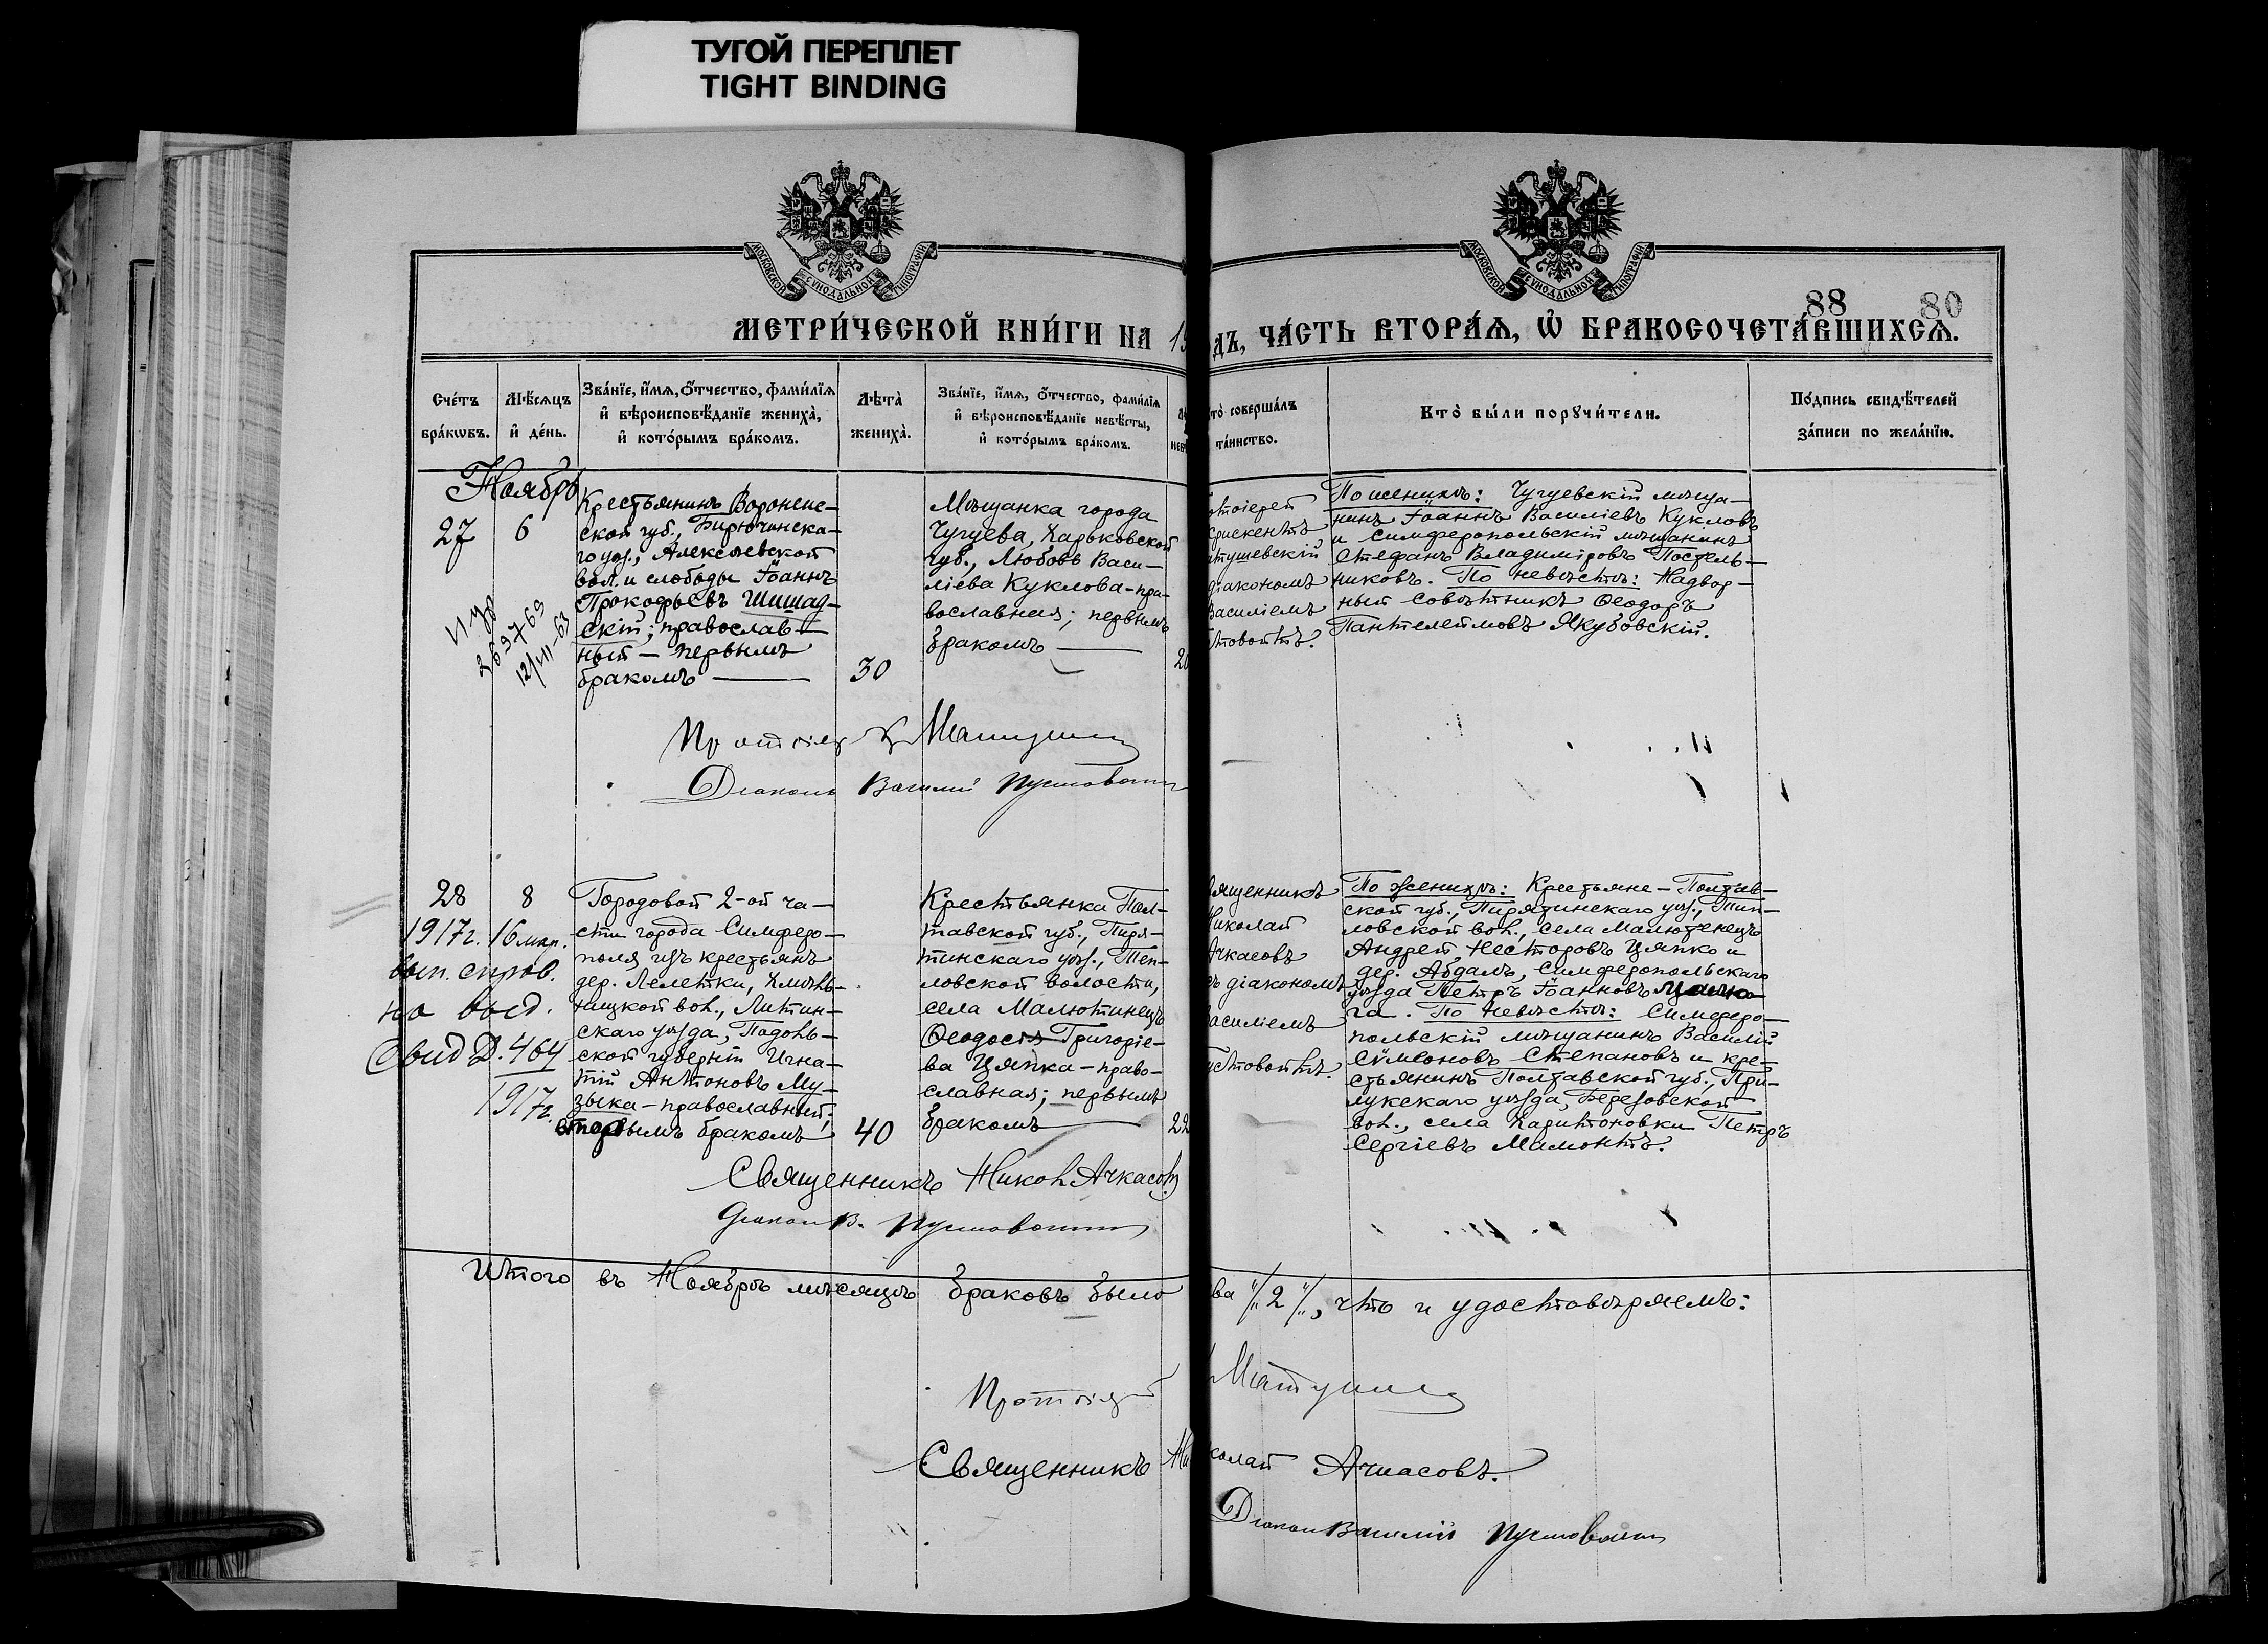 ТУГОЙ ПЕРЕПЛЕТ
TIGHT BINDING
МОСКОВСКОЙ СѴНОДАЛЬНОЙ ТИПОГРАФІИ
МОСКОВСКОЙ СѴНОДАЛЬНОЙ ТИПОГРАФІИ
88 80
МЕТРИ́ЧЕСКОЙ КНИ́ГИ НА 19
дъ, ЧА́СТЬ ВТОРА́Ѧ, Ѡ҆ БРАКОСОЧЕТА́ВШИХСѦ.
Сче́тъ
бра́кωвъ.
Мѣ́сѧцъ
и҆ де́нь.
Зва́нїе, и҆́мѧ, ѻ҆́тчество, фами́лїѧ
и҆ вѣроисповѣ́данїе жениха̀,
и҆ кото́рымъ бра́комъ.
Лѣта̀
жениха̀.
Зва́нїе, и҆́мѧ, ѻ҆́тчество, фами́лїѧ
и҆ вѣроисповѣ́данїе невѣ́сты,
и҆ кото́рымъ бра́комъ.
то̀ соверша́лъ
та́инство.
Кто̀ бы́ли порꙋчи́тели.
По́дпись свидѣ́телей
за́писи по жела́нїю.
Ноябрь
27
6
Крестьянинъ Воронеж-
ской губ., Бирюченска-
го уѣз., Алексѣевской
вол. и слободы Іоаннъ
Прокофьевъ Шишад-
скій; православ-
ный – первымъ
бракомъ
30
Мѣщанка города
Чугуева, Харьковской
губ., Любовь Васи-
ліева Куклова – пра-
вославная; первымъ
бракомъ
20
отоіерей
рискентъ
тушевскій
діакономъ
Василіемъ
стовойтъ.
По женихѣ: Чугуевскій мѣща-
нинъ Іоаннъ Василіевъ Кукловъ
и симферопольскій мѣщанинъ
Стефанъ Владиміровъ Постель-
никовъ. По невѣстѣ: Надвор-
ный совѣтникъ Ѳеодоръ
Пантелеймовъ Якубовскій.
369769
12/VII-63
Протоіер Матушевс
Діаконъ Василій Пустовойтъ
28
8
1917г. 16 мар.
вып. справ.
на выд.
Свид. №. 464
1917г.
Городовой 2-ой ча-
сти города Симферо-
поля изъ крестьянъ
дер. Лелетки, Хмѣль-
ницкой вол., Литин-
скаго уѣзда, Подоль-
ской губерніи Игна-
тій Антоновъ Му-
зыка – православный;
вторымъ бракомъ
40
Крестьянка Пол-
тавской губ., Пиря-
тинскаго уѣз., Теп-
ловской волости,
села Малютинецъ
Ѳеодосія Григоріе-
ва Цяпка – право-
славная; первымъ
бракомъ
22
вященникъ
Николай
Ачкасовъ
съ діакономъ
асиліемъ
устовойтъ.
По женихѣ: Крестьяне – Полтав-
ской губ., Пирятинскаго уѣз., Тип-
ловской вол., села Малютенецъ
Андрей Несторовъ Цяпко и
дер. Абдалъ, Симферопольскаго
уѣзда Петръ Іоанновъ
га. По невѣстѣ: Симферо-
польскій мѣщанинъ Василій
Сѵмеоновъ Степановъ и кре-
стьянинъ Полтавской губ., При-
лукскаго уѣзда, Березовской
вол., села Харитоновки Петръ
Сергіевъ Мамонтъ.
Священникъ Никол Ачкасовъ
Діакон В. Пустовойтъ
Итого въ Ноябрѣ мѣсяцѣ браковъ было
ва "/. 2 "/., что и удостовѣряемъ:
Протоіерей Матушев
Священникъ Николай Ачкасовъ.
Діакон Василій Пустовойтъ